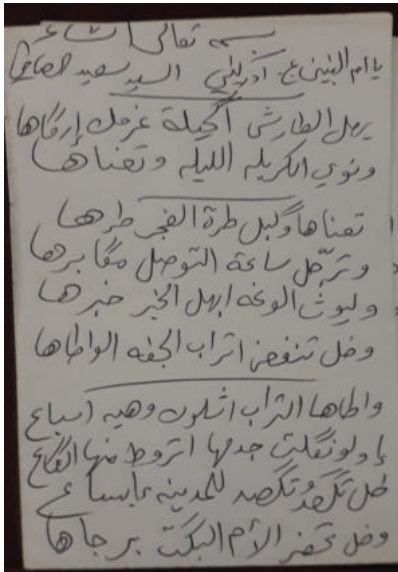 بسمه تعالى الشاعر
يا ام البنين ع ادركيني السيد سعيد الصافي
يهل الطارش اكليلة غرفك إرگاها
ونوي الكربله الليله وتعناها
تعناها وگبل طرة الفجر طرها
وترجّل ساعة التوصل مگابرها
وليوث الوغه ابهل الخبر خبرها
وخل تنفض اتراب الجفه الواطاها
واطاها التراب اشلون وهيه اسباع
إولو نگلت جدمها اتروط منها الگاع
خل تگعد وتگصد للمدينه ابساع
وخل تحضر الأم البگت برجاها